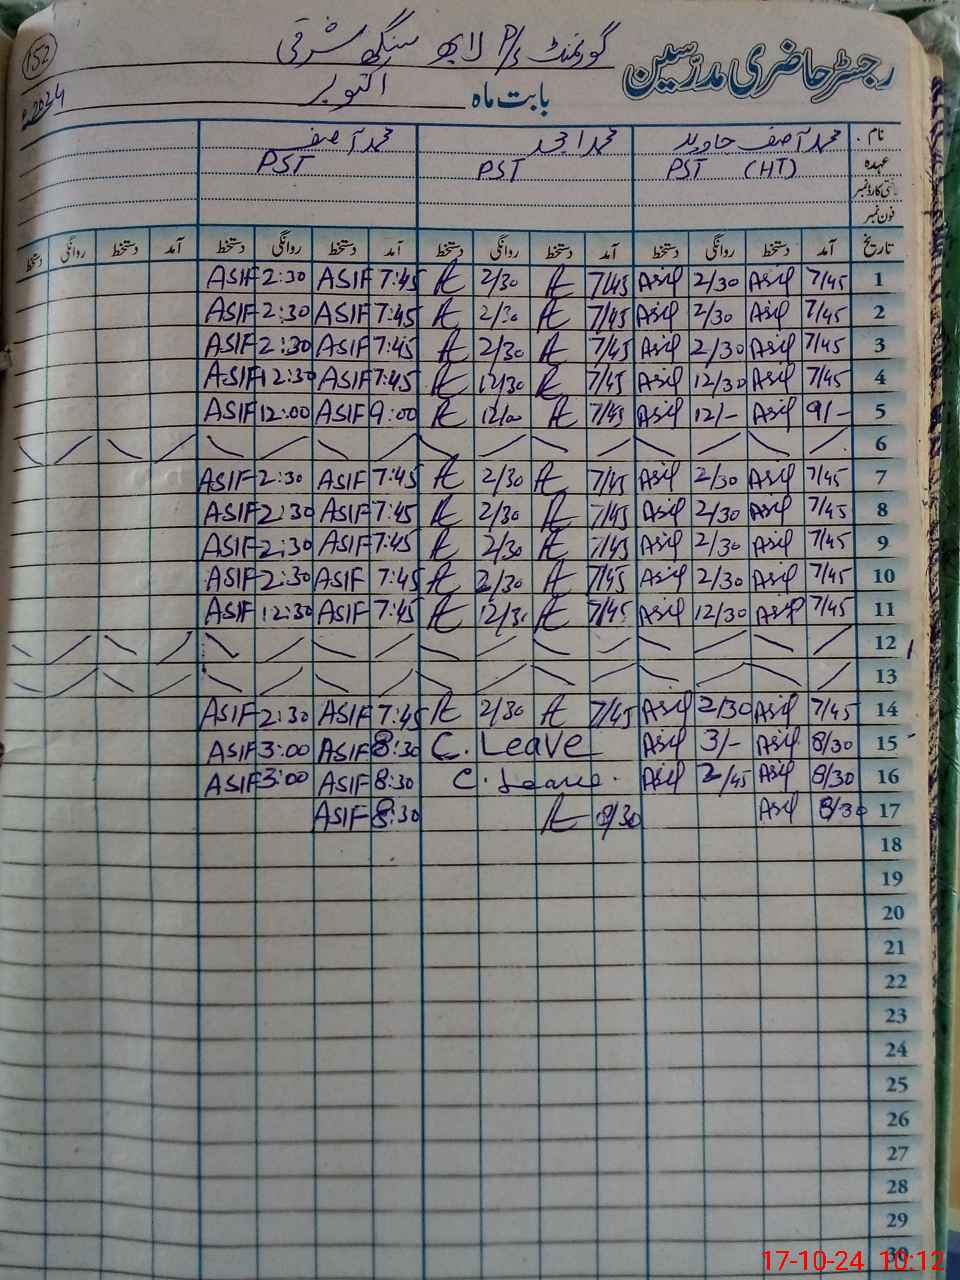 152
رجسٹر حاضری مدرسین گورنمنٹ P/S لابھ سنگھ شرقی
بابت ماہ اکتوبر 2024ء
نام محمد آصف جاوید محمد امجد محمد آصف
عہدہ PST (HT) PST PST
فون نمبر
تاریخ آمد دستخط روانگی دستخط آمد دستخط روانگی دستخط آمد دستخط روانگی دستخط آمد دستخط روانگی دستخط
1 7/45 Asif 2/30 Asif 7/45 A 2/30 A 7:45 ASIF 2:30 ASIF
2 7/45 Asif 2/30 Asif 7/45 A 2/30 A 7:45 ASIF 2:30 ASIF
3 7/45 Asif 2/30 Asif 7/45 A 2/30 A 7:45 ASIF 2:30 ASIF
4 7/45 Asif 12/30 Asif 7/45 A 12/30 A 7:45 ASIF 12:30 ASIF
5 9/- Asif 12/- Asif 7/45 A 12/00 A 9:00 ASIF 12:00 ASIF
6
7 7/45 Asif 2/30 Asif 7/45 A 2/30 A 7:45 ASIF 2:30 ASIF
8 7/45 Asif 2/30 Asif 7/45 A 2/30 A 7:45 ASIF 2:30 ASIF
9 7/45 Asif 2/30 Asif 7/45 A 2/30 A 7:45 ASIF 2:30 ASIF
10 7/45 Asif 2/30 Asif 7/45 A 2/30 A 7:45 ASIF 2:30 ASIF
11 7/45 Asif 12/30 Asif 7/45 A 12/30 A 7:45 ASIF 12:30 ASIF
12
13
14 7/45 Asif 2/30 Asif 7/45 A 2/30 A 7:45 ASIF 2:30 ASIF
15 8/30 Asif 3/- Asif C. Leave 8:30 ASIF 3:00 ASIF
16 8/30 Asif 2/45 Asif C. Leave 8:30 ASIF 3:00 ASIF
17 8/30 Asif 8/30 A 8:30 ASIF
18
19
20
21
22
23
24
25
26
27
28
29
30
17-10-24 10:12